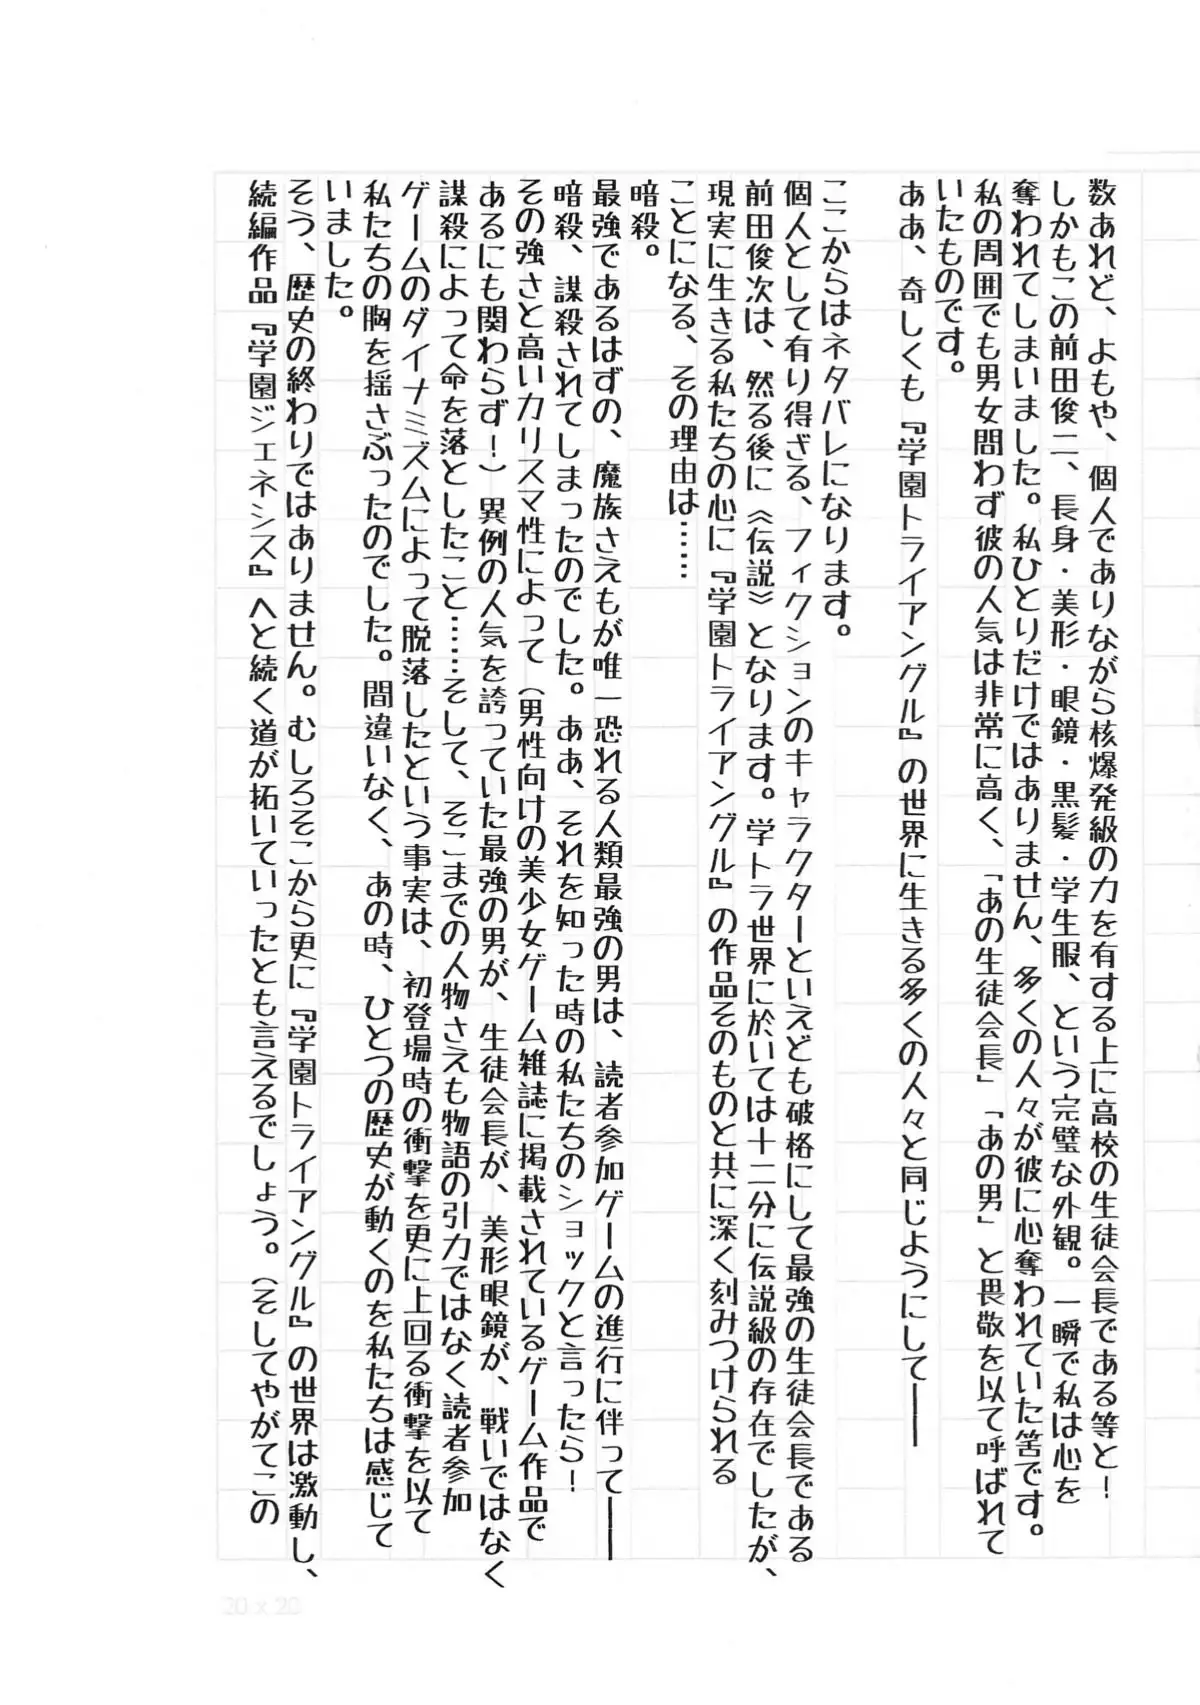 数あれど、よもや、個人でありながら核爆発級の力を有する上に高校の生徒会長である等と！
しかもこの前田俊二、長身・美形・眼鏡・黒髪・学生服、という完璧な外観。一瞬で私は心を
奪われてしまいました。私ひとりだけではありません、多くの人々が彼に心奪われていた筈です。
私の周囲でも男女問わず彼の人気は非常に高く、「あの生徒会長」「あの男」と畏敬を以て呼ばれて
いたものです。
ああ、奇しくも『学園トライアングル』の世界に生きる多くの人々と同じようにして――
ここからはネタバレになります。
個人として有り得ざる、フィクションのキャラクターといえども破格にして最強の生徒会長である
前田俊次は、然る後に《伝説》となります。学トラ世界に於いては十二分に伝説級の存在でしたが、
現実に生きる私たちの心に『学園トライアングル』の作品そのものと共に深く刻みつけられる
ことになる、その理由は……
暗殺。
最強であるはずの、魔族さえもが唯一恐れる人類最強の男は、読者参加ゲームの進行に伴って――
暗殺、謀殺されてしまったのでした。ああ、それを知った時の私たちのショックと言ったら！
その強さと高いカリスマ性によって（男性向けの美少女ゲーム雑誌に掲載されているゲーム作品で
あるにも関わらず！）異例の人気を誇っていた最強の男が、生徒会長が、美形眼鏡が、戦いではなく
謀殺によって命を落としたこと……そして、そこまでの人物さえも物語の引力ではなく読者参加
ゲームのダイナミズムによって脱落したという事実は、初登場時の衝撃を更に上回る衝撃を以て
私たちの胸を揺さぶったのでした。間違いなく、あの時、ひとつの歴史が動くのを私たちは感じて
いました。
そう、歴史の終わりではありません。むしろそこから更に『学園トライアングル』の世界は激動し、
続編作品『学園ジェネシス』へと続く道が拓いていったとも言えるでしょう。（そしてやがてこの
20 x 20